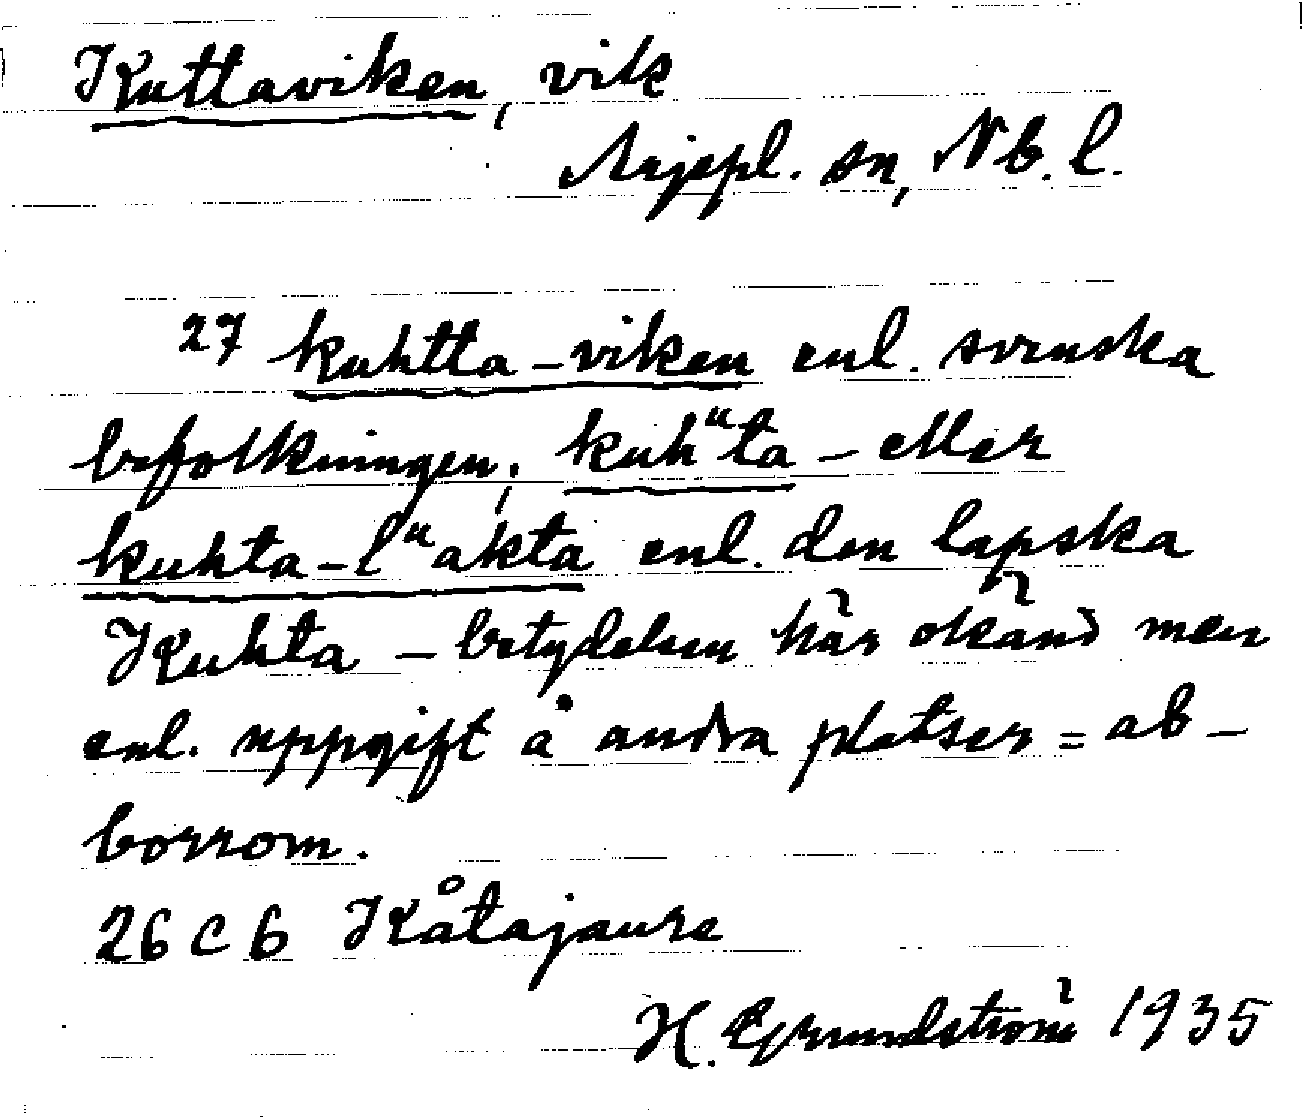 Kuttaviken, vik
Arjepl. sn, Nb. l.
27 kuhtta-viken enl. svenska
befolkningen; kuhᵘta - eller
kuhta-lᵘakta enl. den lapska
Kuhta - betydelsen här okänd men
enl. uppgift å andra platser = ab-
borrom.
26 C 6 Kåtajaure
H. Grundström 1935